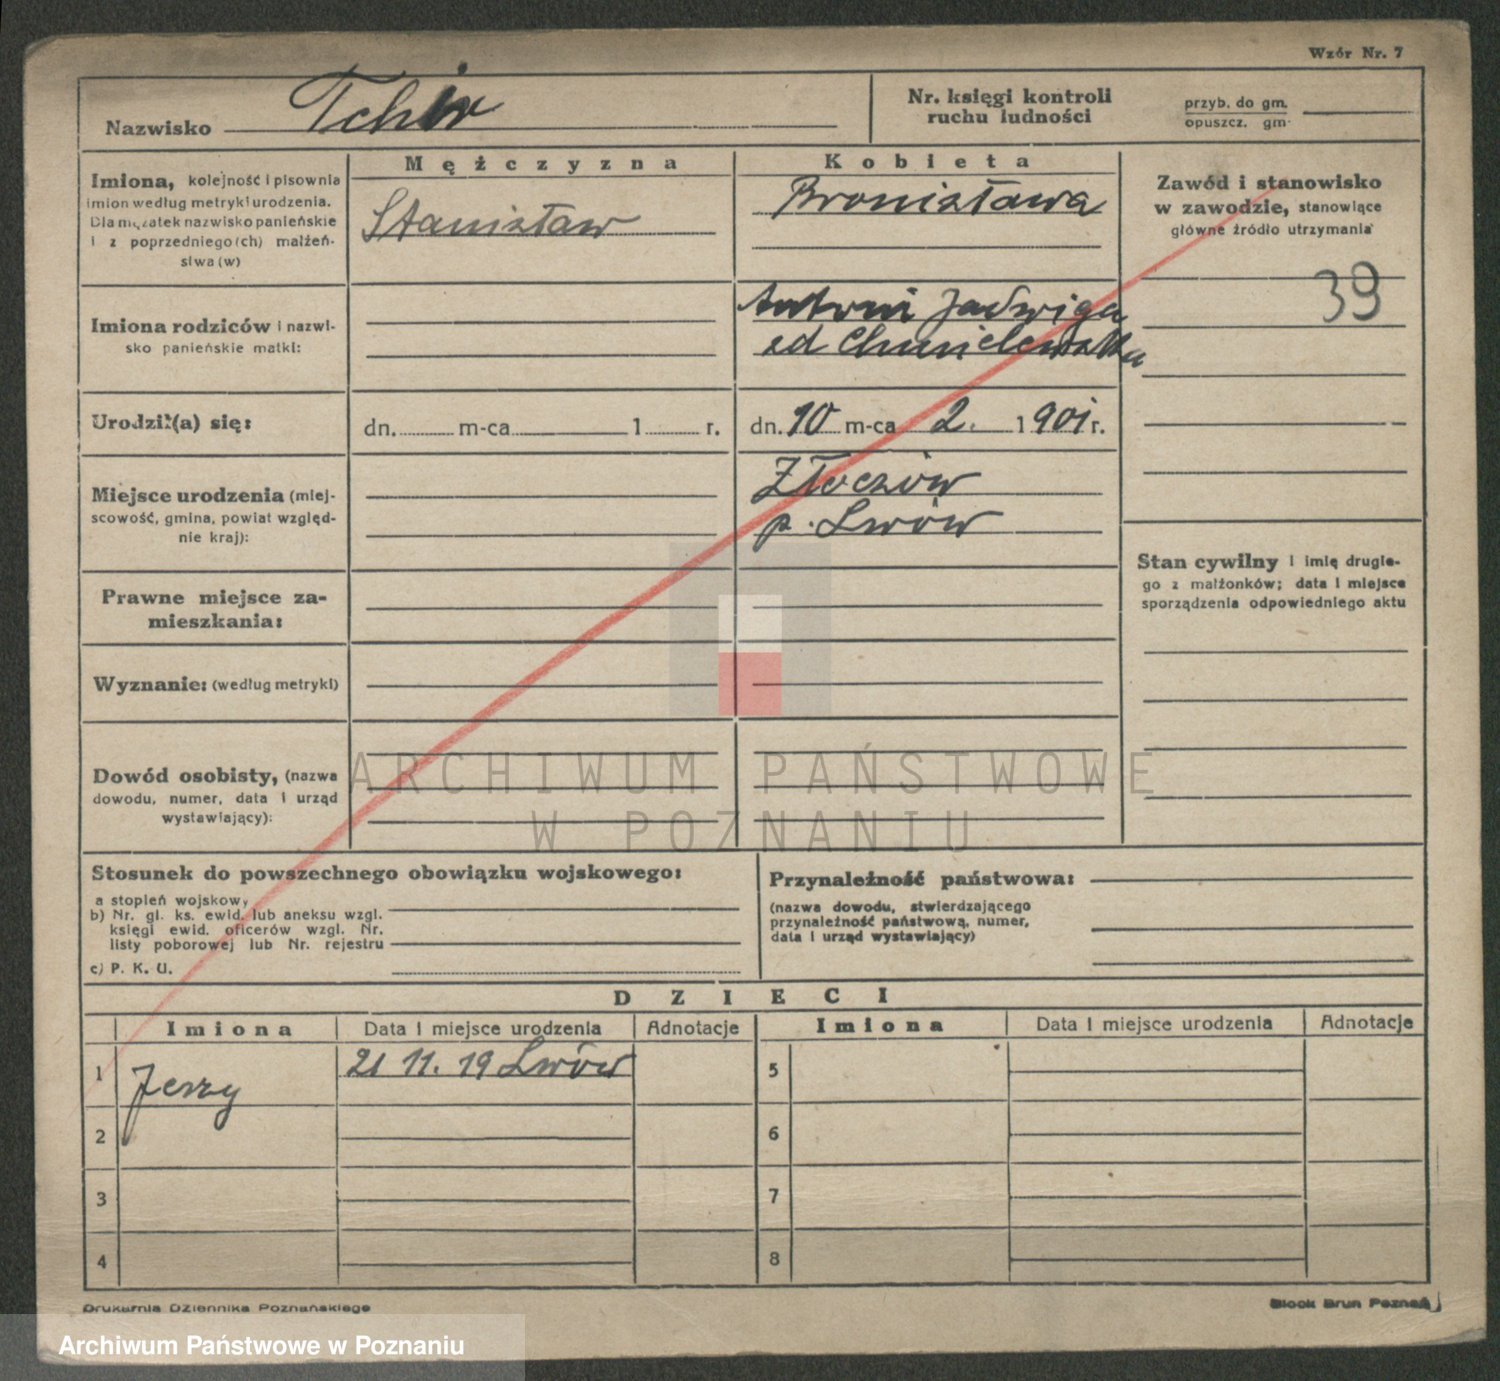 Wzór Nr. 7
Nazwisko Tchir
Nr. księgi kontroli
ruchu ludności
przyb. do gm.
opuszcz. gm.
Mężczyzna
Kobieta
Imiona, kolejność i pisownia
imion według metryki urodzenia.
Dla mężatek nazwisko panieńskie
i z poprzedniego (ch) małżeń-
stwa (w)
Stanisław
Bronisława
Zawód i stanowisko
w zawodzie, stanowiące
główne źródło utrzymania
39
Imiona rodziców i nazwi-
sko panieńskie matki:
Antoni Jadwiga
zd Chmielewska
Urodził(a) się:
dn. m-ca 1 r.
dn. 10 m-ca 2. 1901 r.
Miejsce urodzenia (miej-
scowość, gmina, powiat względ-
nie kraj):
Złoczów
p. Lwów
Stan cywilny i imię drugie-
go z małżonków; data i miejsce
sporządzenia odpowiedniego aktu
Prawne miejsce za-
mieszkania:
Wyznanie: (według metryki)
Dowód osobisty, (nazwa
dowodu, numer, data i urząd
wystawiający):
ARCHIWUM PAŃSTWOWE
W POZNANIU
Stosunek do powszechnego obowiązku wojskowego:
a stopień wojskowy
b) Nr. gl. ks. ewid. lub aneksu wzgl.
księgi ewid. oficerów wzgl. Nr.
listy poborowej lub Nr. rejestru
c) P. K. U.
Przynależność państwowa:
(nazwa dowodu, stwierdzającego
przynależność państwową, numer,
data i urząd wystawiający)
DZIECI
Imiona Data i miejsce urodzenia Adnotacje Imiona Data i miejsce urodzenia Adnotacje
1 Jerzy 21 11. 19 Lwów 5
2 6
3 7
4 8
Drukarnia Dziennika Poznańskiego
Block Brun Poznań
Archiwum Państwowe w Poznaniu